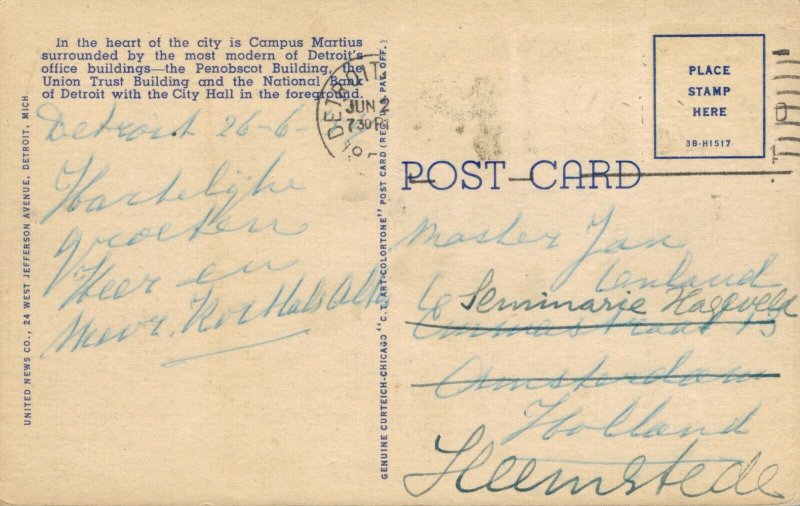 In the heart of the city is Campus Martius
surrounded by the most modern of Detroit's
office buildings—the Penobscot Building, the
Union Trust Building and the National Bank
of Detroit with the City Hall in the foreground.
Detroit 26-6-
Hartelijke
groeten
Heer en
Mevr. Korthals Altes
UNITED NEWS CO., 24 WEST JEFFERSON AVENUE, DETROIT, MICH.
GENUINE CURTEICH-CHICAGO "C.T. ART-COLORTONE" POST CARD (REG. U.S. PAT. OFF.)
DETROIT
JUN 2
7 30 P
PLACE
STAMP
HERE
3B-H1517
POST CARD
Master Jan
Seminarie Hageveld
Amsterdam
Holland
Heemstede